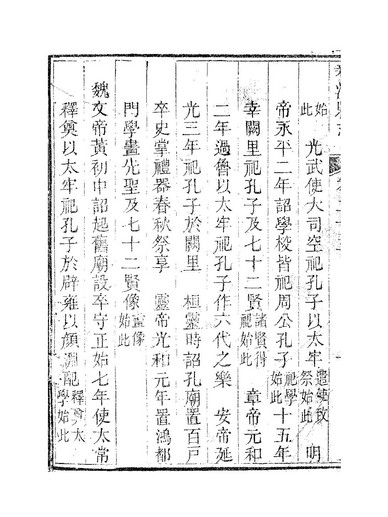 始此 光武使大司空祀孔子以太牢遣使致祭始此 明
帝永平二年詔學校皆祀周公孔子祀學始此十五年
幸闕里祀孔子及七十二賢諸賢得祀始此 章帝元和
二年過魯以太牢祀孔子作六代之樂 安帝延
光三年祀孔子於闕里 桓靈時詔孔廟置百戸
卒史掌禮器春秋祭享 靈帝光和元年置鴻都
門學畫先聖及七十二賢像畫像始此
魏文帝黃初中詔起舊廟設卒守正始七年使太常
釋奠以太牢祀孔子於辟雍以顏淵配釋奠太學始此